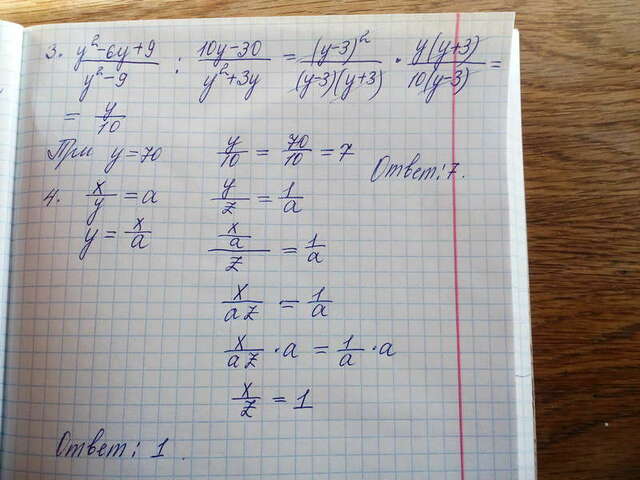 3. (y²-6y+9)/(y²-9) : (10y-30)/(y²+3y) = (y-3)²/((y-3)(y+3)) · y(y+3)/(10(y-3)) =
= y/10
При y=70 y/10 = 70/10 = 7 Ответ: 7.
4. x/y = a y/z = 1/a
y = x/a (x/a)/z = 1/a
x/(az) = 1/a
x/(az) · a = 1/a · a
x/z = 1
Ответ: 1.